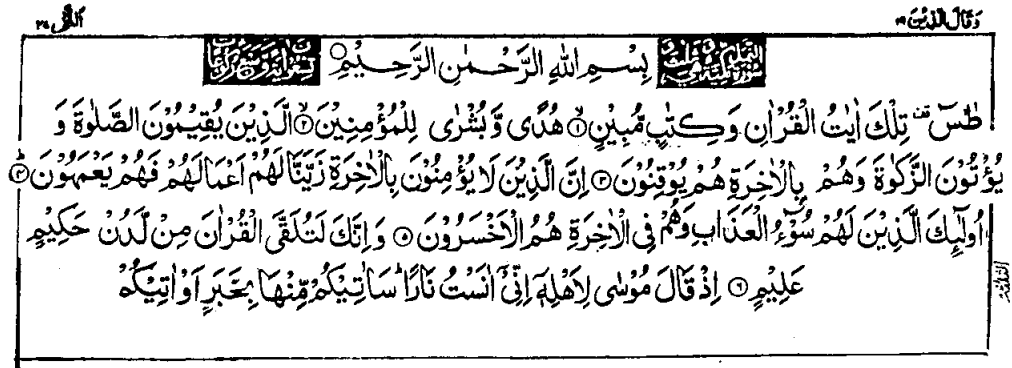 وَقَالَ الَّذِيْنَ ١٩
النَّمْل ٢٧
بِسْمِ اللّٰهِ الرَّحْمٰنِ الرَّحِيْمِ
طٰسٓ تِلْكَ اٰيٰتُ الْقُرْاٰنِ وَكِتٰبٍ مُّبِيْنٍ ۙ۝۱ هُدًى وَّبُشْرٰى لِلْمُؤْمِنِيْنَ ۙ۝۲ الَّذِيْنَ يُقِيْمُوْنَ الصَّلٰوةَ وَ
يُؤْتُوْنَ الزَّكٰوةَ وَهُمْ بِالْاٰخِرَةِ هُمْ يُوْقِنُوْنَ ۝۳ اِنَّ الَّذِيْنَ لَا يُؤْمِنُوْنَ بِالْاٰخِرَةِ زَيَّنَّا لَهُمْ اَعْمَالَهُمْ فَهُمْ يَعْمَهُوْنَ ؕ۝۴
اُولٰٓئِكَ الَّذِيْنَ لَهُمْ سُوْٓءُ الْعَذَابِ وَهُمْ فِى الْاٰخِرَةِ هُمُ الْاَخْسَرُوْنَ ۝۵ وَاِنَّكَ لَتُلَقَّى الْقُرْاٰنَ مِنْ لَّدُنْ حَكِيْمٍ
عَلِيْمٍ ۝۶ اِذْ قَالَ مُوْسٰى لِاَهْلِهٖٓ اِنِّىْٓ اٰنَسْتُ نَارًا ؕ سَاٰتِيْكُمْ مِّنْهَا بِخَبَرٍ اَوْ اٰتِيْكُمْ